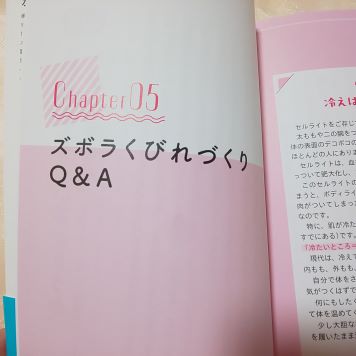 Chapter05
ズボラくびれづくり
Q&A
冷えは
セルライトをご存じ
太ももや二の腕をつ
体の表面のデコボコの
ほとんどの人にあります
セルライトは、血
っついて肥大化し、
このセルライトの
まうと、ボディライ
肉がついてしまった
なのです。
特に、肌が冷た
すでにある)です。
「冷たいところ＝
現代は、冷えて
内も、外も。
自分で体をさ
気がつくはずで
何にもしたく
て体を温めてく
少し大胆な
を履いたまま